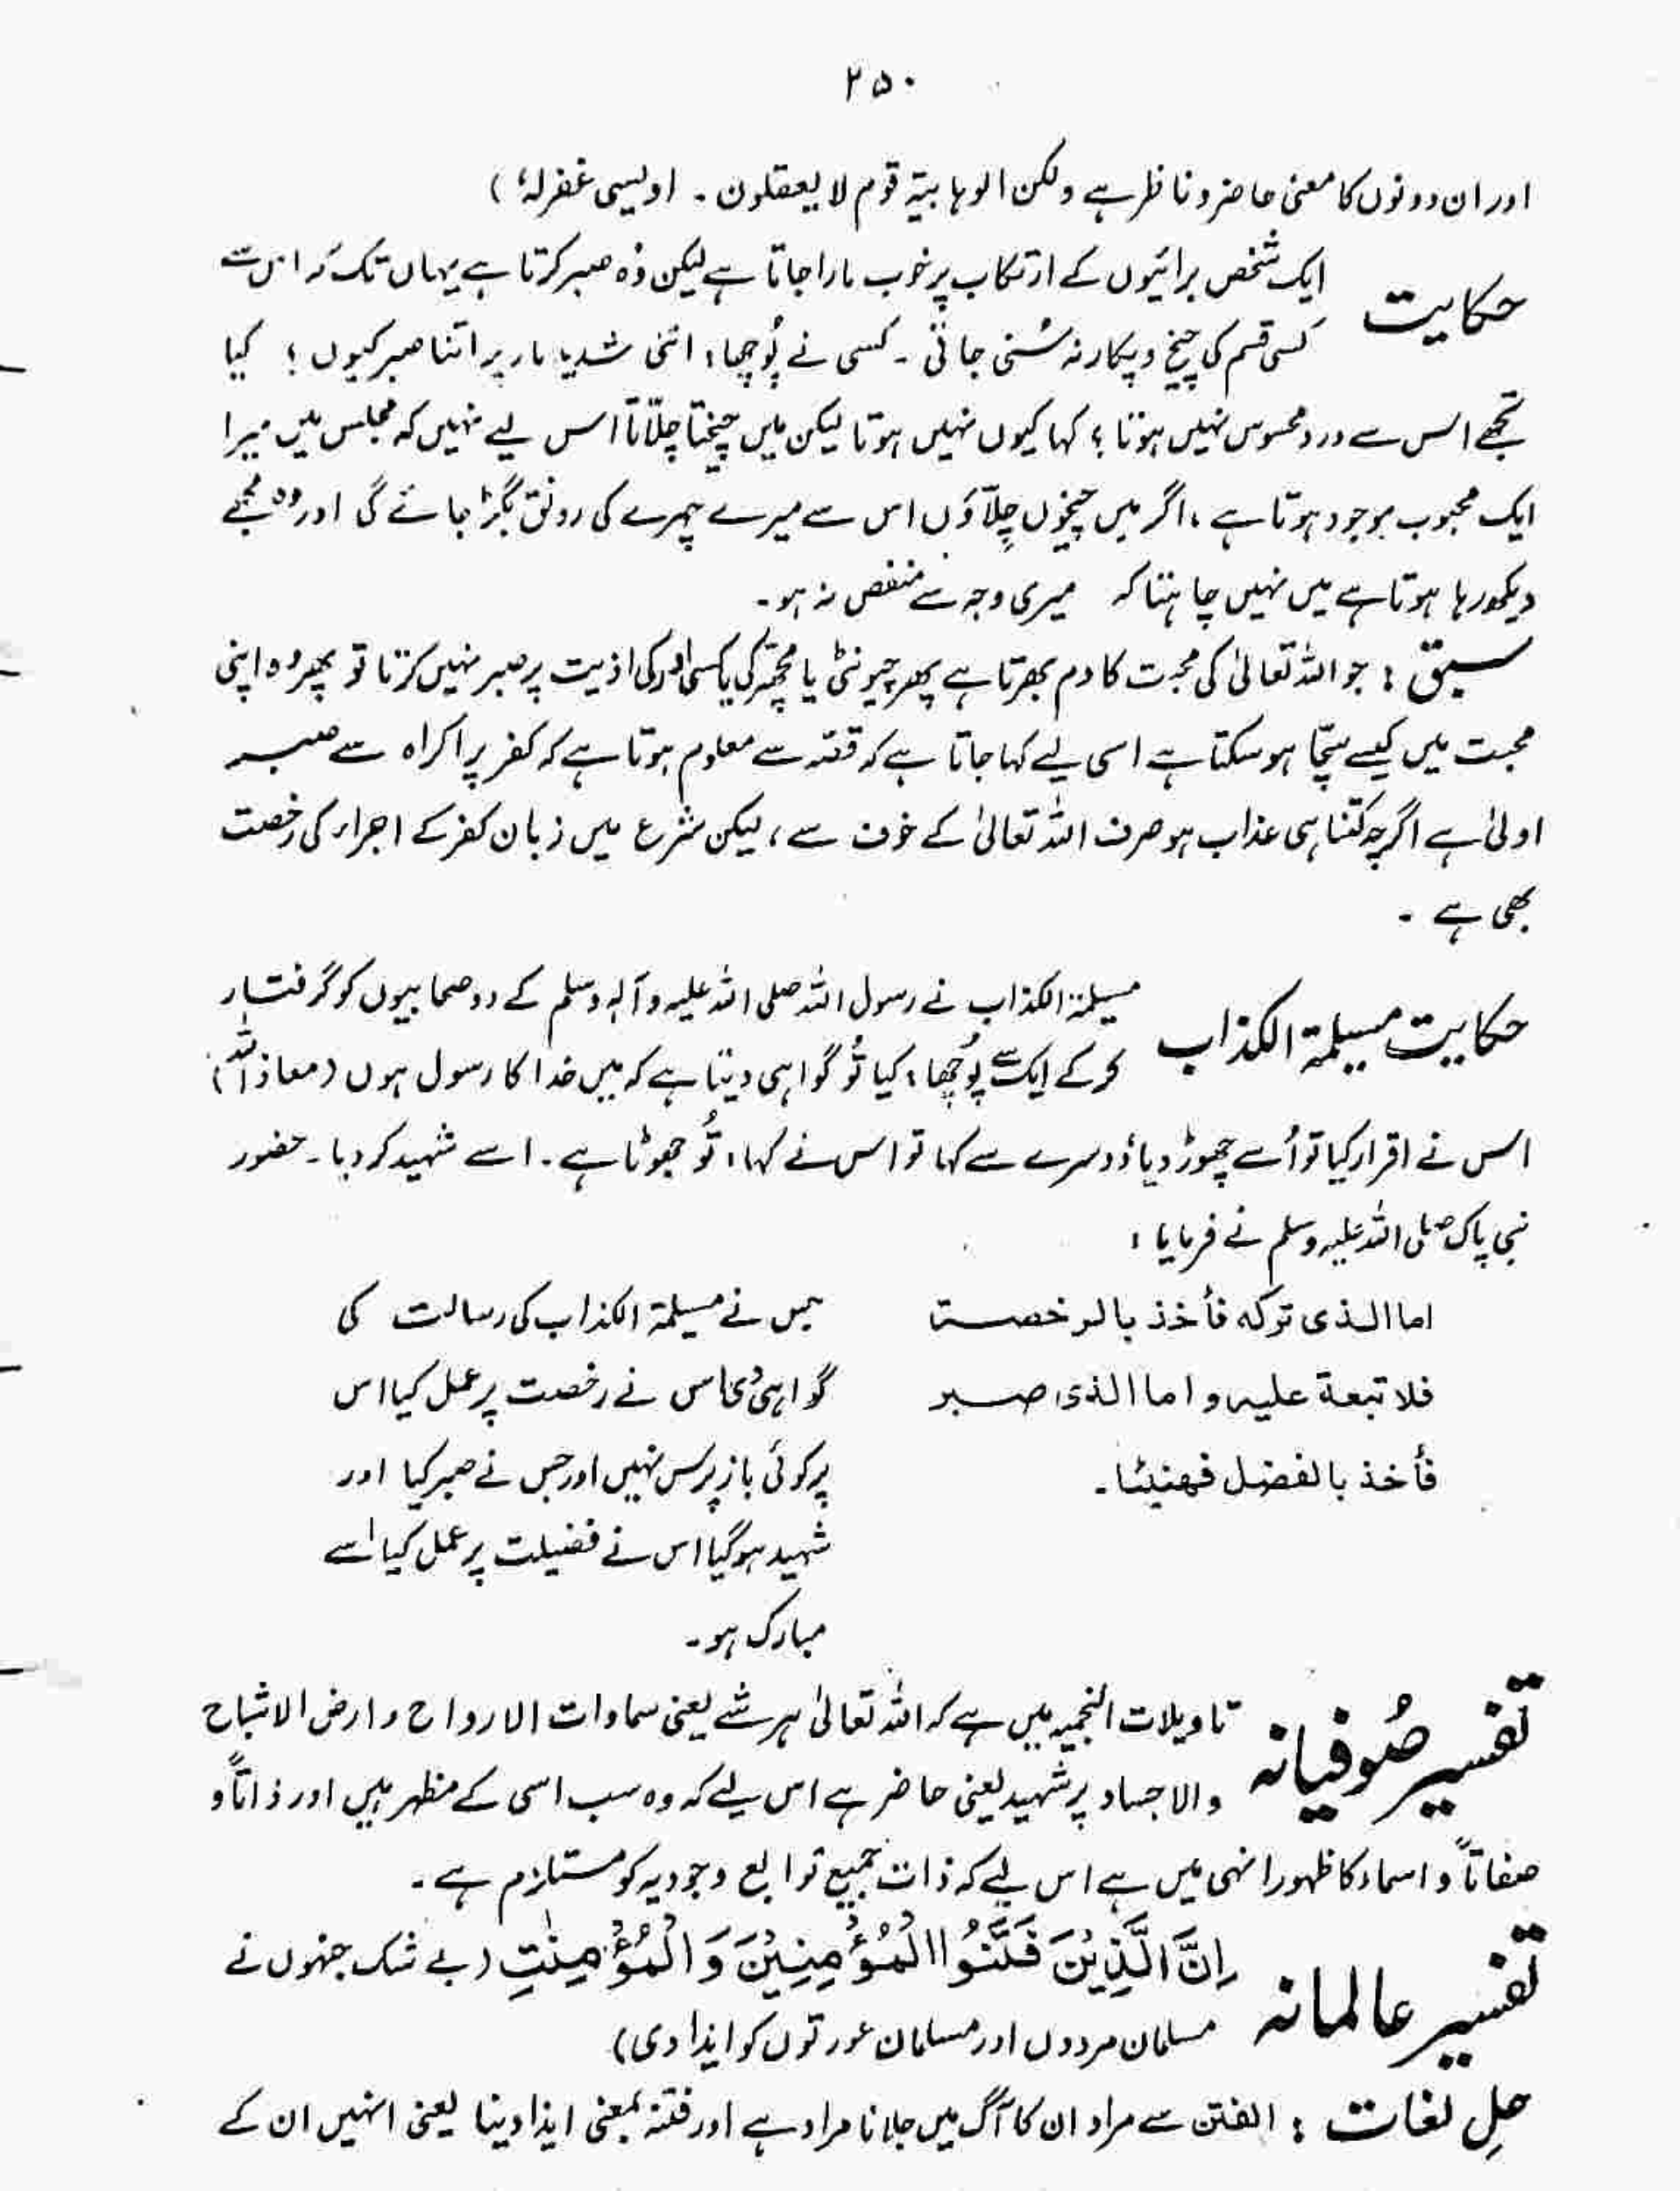 ۲۵۰
اور ان دونوں کا معنی حاضر و ناظر ہے ولکن الوہابیۃ قوم لا یعقلون ۔ اویسی غفرلہٗ )
حکایت ایک شخص برائیوں کے ارتکاب پر خوب مارا جاتا ہے لیکن وُہ صبر کرتا ہے یہاں تک کہ اس سے
کسی قسم کی چیخ و پکار نہ سُنی جاتی ۔ کسی نے پُوچھا : اتنی شدید مار پر اتنا صبر کیوں ؟ کیا
تجھے اس سے درد محسوس نہیں ہوتا ؟ کہا کیوں نہیں ہوتا لیکن میں چیختا چلّاتا اس لیے نہیں کہ مجلس میں میرا
ایک محبوب موجود ہوتا ہے ، اگر میں چیخوں چِلّاؤں اس سے میرے چہرے کی رونق بگڑ جائے گی اور وہ مجھے
دیکھ رہا ہوتا ہے میں نہیں چاہتا کہ میری وجہ سے منغص نہ ہو ۔
سبق : جو اللہ تعالیٰ کی محبت کا دم بھرتا ہے پھر چیونٹی یا مچھر کی یا کسی اور کی اذیت پر صبر نہیں کرتا تو پھر وہ اپنی
محبت میں کیسے سچّا ہو سکتا ہے اسی لیے کہا جاتا ہے کہ قصّہ سے معلوم ہوتا ہے کہ کفر پر اکراہ سے صبر
اولیٰ ہے اگرچہ کتنا ہی عذاب ہو صرف اللہ تعالیٰ کے خوف سے ، لیکن شرع میں زبان کفر کے اجراء کی رخصت
بھی ہے ۔
حکایت مسیلمۃ الکذاب مسیلمۃ الکذاب نے رسول اللہ صلی اللہ علیہ وآلہٖ وسلم کے دو صحابیوں کو گرفتار
کر کے ایک سے پُوچھا : کیا تُو گواہی دیتا ہے کہ میں خدا کا رسول ہوں (معاذ اللہ)
اس نے اقرار کیا تو اُسے چھوڑ دیا ، دوسرے سے کہا تو اس نے کہا : تُو جھوٹا ہے ۔ اسے شہید کر دیا ۔ حضور
نبی پاک صلی اللہ علیہ وسلم نے فرمایا :
اما الذی ترکہ فأخذ بالرخصۃ
فلا تبعۃ علیہ و اما الذی صبر
فأخذ بالفضل فهنیئا ۔
جس نے مسیلمۃ الکذاب کی رسالت کی
گواہی دی اس نے رخصت پر عمل کیا اس
پر کوئی باز پرس نہیں اور جس نے صبر کیا اور
شہید ہو گیا اس نے فضیلت پر عمل کیا اسے
مبارک ہو ۔
تفسیر صُوفیانہ تاویلات النجمیہ میں ہے کہ اللہ تعالیٰ ہر شے یعنی سماوات الارواح و ارض الاشباح
والاجساد پر شہید یعنی حاضر ہے اس لیے کہ وہ سب اسی کے مظہر ہیں اور ذاتاً و
صفاتاً و اسماء کا ظہور انہی میں ہے اس لیے کہ ذات جمیع توابع وجودیہ کو مستلزم ہے ۔
تفسیر عالمانہ اِنَّ الَّذِیْنَ فَتَنُوا الْمُؤْمِنِیْنَ وَالْمُؤْمِنٰتِ (بے شک جنہوں نے
مسلمان مردوں اور مسلمان عورتوں کو ایذا دی)
حلِ لغات : الفتن سے مراد ان کا آگ میں جلانا مراد ہے اور فتنہ بمعنی ایذا دینا یعنی انہیں ان کے